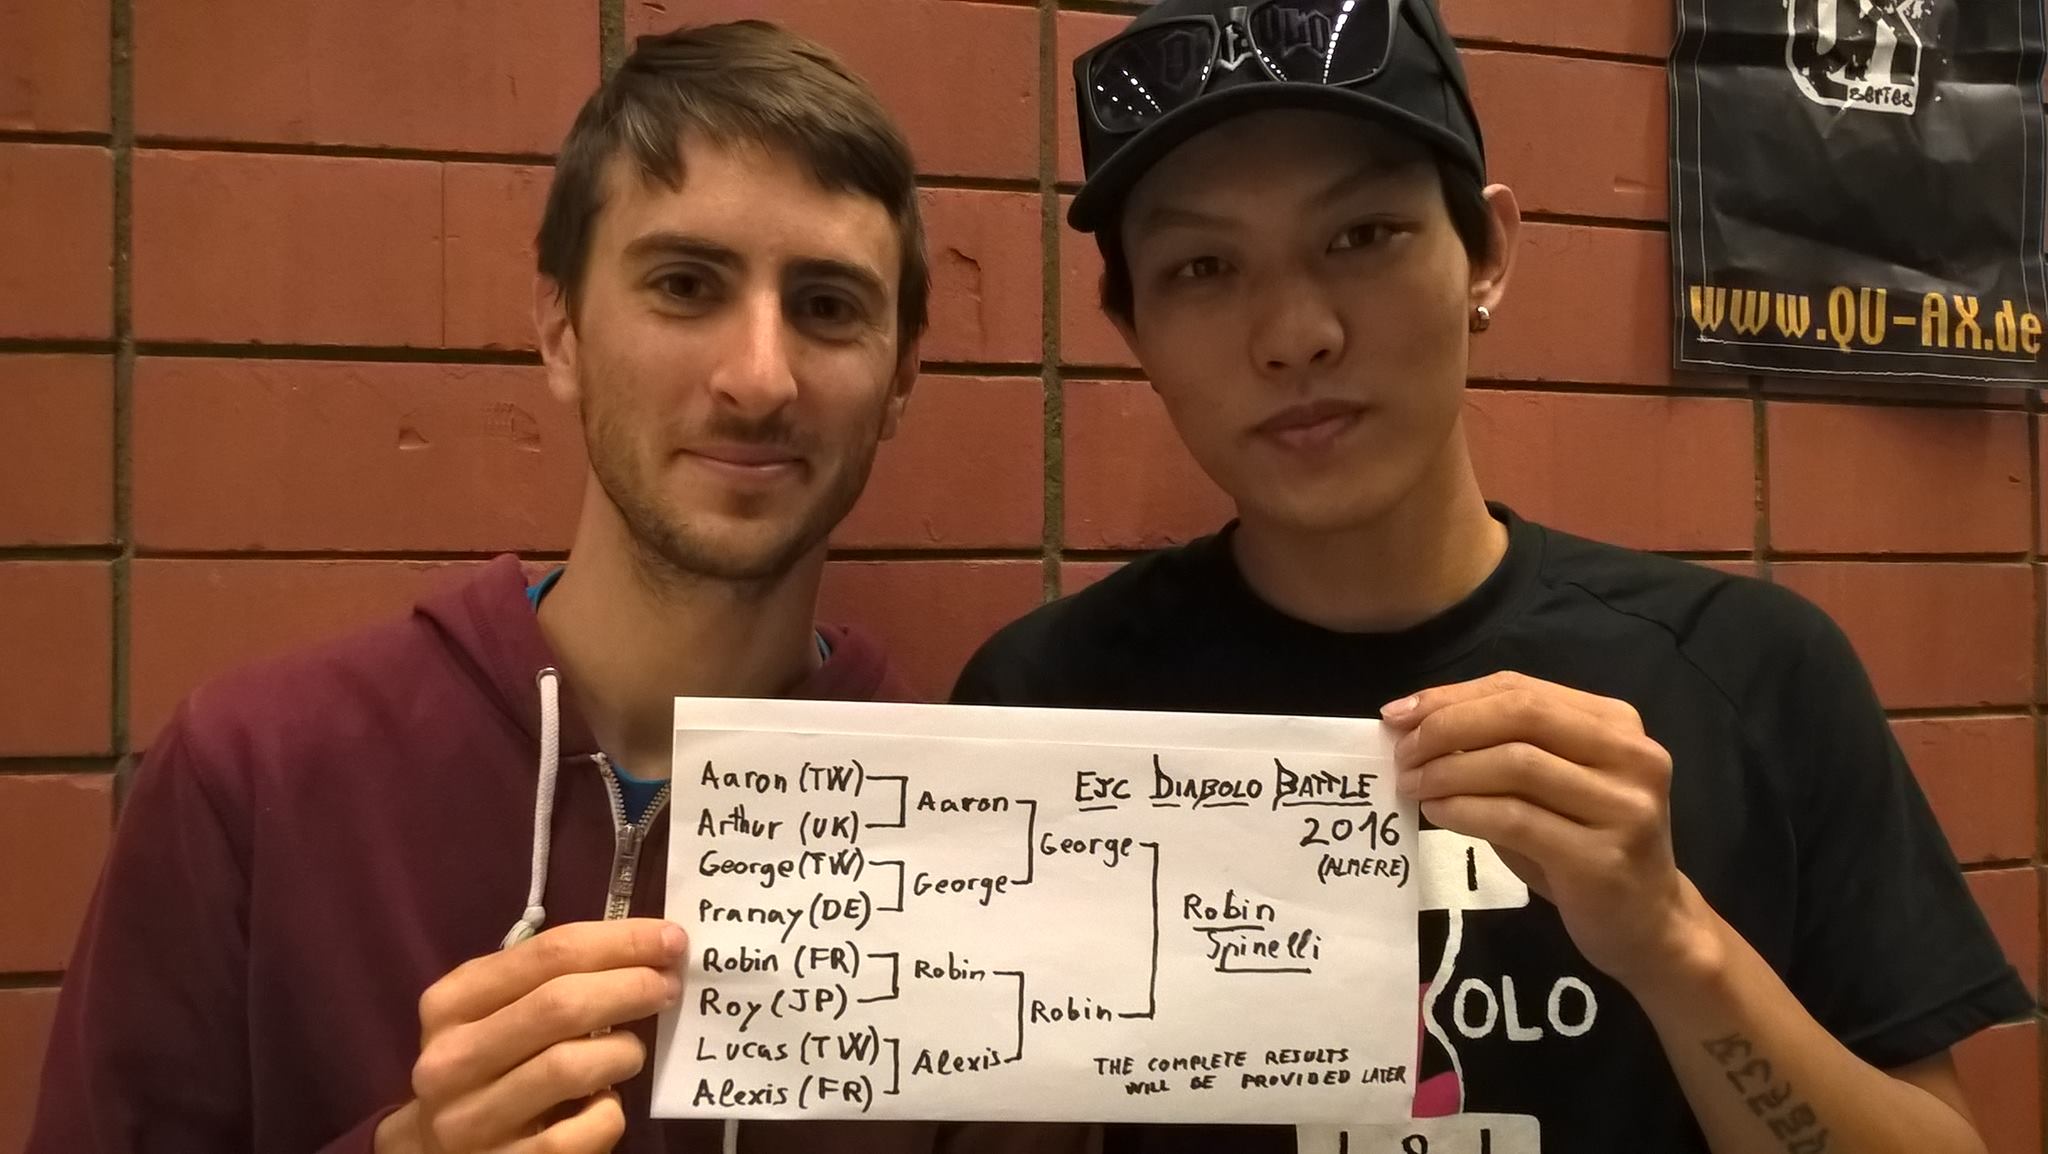 series
www.QU-AX.de
EJC DIABOLO BATTLE
2016
(ALMERE)
Aaron (TW)
Arthur (UK)
George (TW)
Pranay (DE)
Robin (FR)
Roy (JP)
Lucas (TW)
Alexis (FR)
Aaron
George
Robin
Alexis
George
Robin
Robin
Spinelli
THE COMPLETE RESULTS
WILL BE PROVIDED LATER
OLO